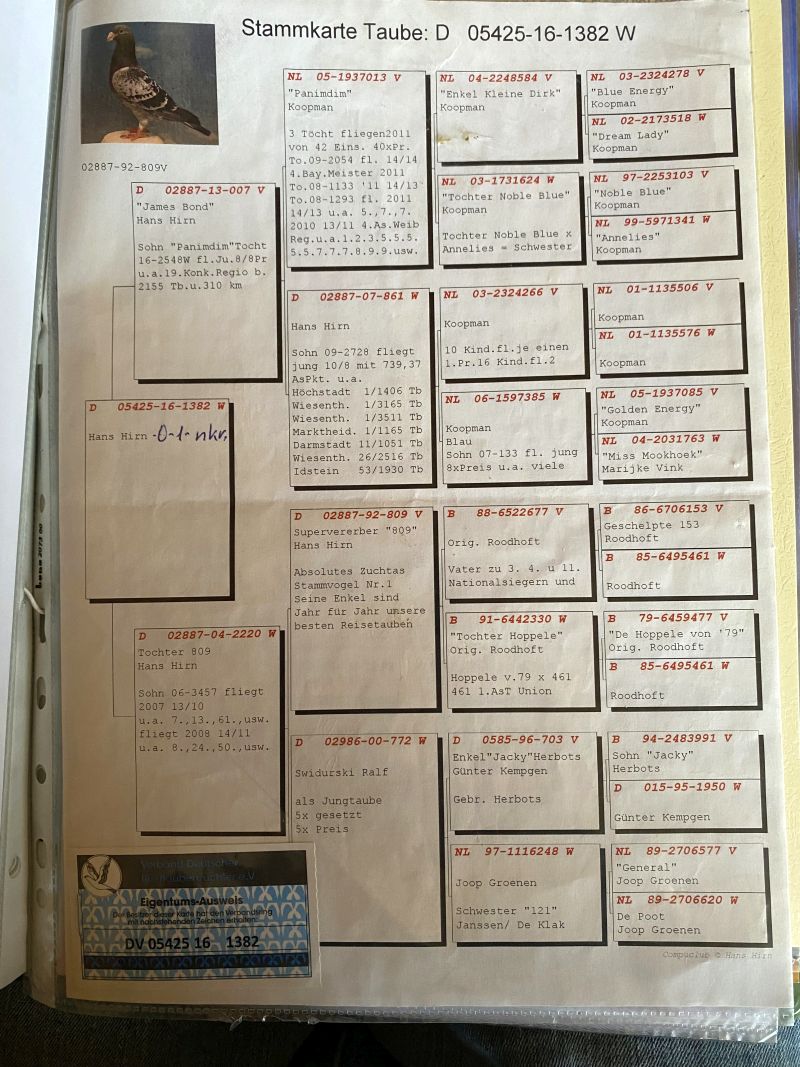 Stammkarte Taube: D 05425-16-1382 W
02887-92-809V
D 05425-16-1382 W
Hans Hirn -0-1- nkr,
D 02887-13-007 V
"James Bond"
Hans Hirn
Sohn "Panimdim"Tocht
16-2548W fl.Ju.8/8Pr
u.a.19.Konk.Regio b.
2155 Tb.u.310 km
D 02887-04-2220 W
Tochter 809
Hans Hirn
Sohn 06-3457 fliegt
2007 13/10
u.a. 7.,13.,61.,usw.
fliegt 2008 14/11
u.a. 8.,24.,50.,usw.
NL 05-1937013 V
"Panimdim"
Koopman
3 Töcht fliegen2011
von 42 Eins. 40xPr.
To.09-2054 fl. 14/14
4.Bay.Meister 2011
To.08-1133 '11 14/13
To.08-1293 fl. 2011
14/13 u.a. 5.,7.,7.
2010 13/11 4.As.Weib
Reg.u.a.1.2.3.5.5.5.
5.5.7.7.7.8.9.9.usw.
D 02887-07-861 W
Hans Hirn
Sohn 09-2728 fliegt
jung 10/8 mit 739,37
AsPkt. u.a.
Höchstadt 1/1406 Tb
Wiesenth. 1/3165 Tb
Wiesenth. 1/3511 Tb
Marktheid. 1/1165 Tb
Darmstadt 11/1051 Tb
Wiesenth. 26/2516 Tb
Idstein 53/1930 Tb
D 02887-92-809 V
Supervererber "809"
Hans Hirn
Absolutes Zuchtas
Stammvogel Nr.1
Seine Enkel sind
Jahr für Jahr unsere
besten Reisetauben
D 02986-00-772 W
Swidurski Ralf
als Jungtaube
5x gesetzt
5x Preis
NL 04-2248584 V
"Enkel Kleine Dirk"
Koopman
NL 03-1731624 W
"Tochter Noble Blue"
Koopman
Tochter Noble Blue x
Annelies = Schwester
NL 03-2324266 V
Koopman
10 Kind.fl.je einen
1.Pr.16 Kind.fl.2
NL 06-1597385 W
Koopman
Blau
Sohn 07-133 fl. jung
8xPreis u.a. viele
B 88-6522677 V
Orig. Roodhoft
Vater zu 3. 4. u 11.
Nationalsiegern und
B 91-6442330 W
"Tochter Hoppele"
Orig. Roodhoft
Hoppele v.79 x 461
461 1.AsT Union
D 0585-96-703 V
Enkel"Jacky"Herbots
Günter Kempgen
Gebr. Herbots
NL 97-1116248 W
Joop Groenen
Schwester "121"
Janssen/ De Klak
NL 03-2324278 V
"Blue Energy"
Koopman
NL 02-2173518 W
"Dream Lady"
Koopman
NL 97-2253103 V
"Noble Blue"
Koopman
NL 99-5971341 W
"Annelies"
Koopman
NL 01-1135506 V
Koopman
NL 01-1135576 W
Koopman
NL 05-1937085 V
"Golden Energy"
Koopman
NL 04-2031763 W
"Miss Mookhoek"
Marijke Vink
B 86-6706153 V
Geschelpte 153
Roodhoft
B 85-6495461 W
Roodhoft
B 79-6459477 V
"De Hoppele von '79"
Orig. Roodhoft
B 85-6495461 W
Roodhoft
B 94-2483991 V
Sohn "Jacky"
Herbots
D 015-95-1950 W
Günter Kempgen
NL 89-2706577 V
"General"
Joop Groenen
NL 89-2706620 W
De Poot
Joop Groenen
Compuclub © Hans Hirn
Verband Deutscher
Brieftaubenzüchter e.V.
Eigentums-Ausweis
Der Besitzer dieser Karte hat den Verbandsring
mit nachstehenden Zeichen erhalten:
DV 05425 16 1382